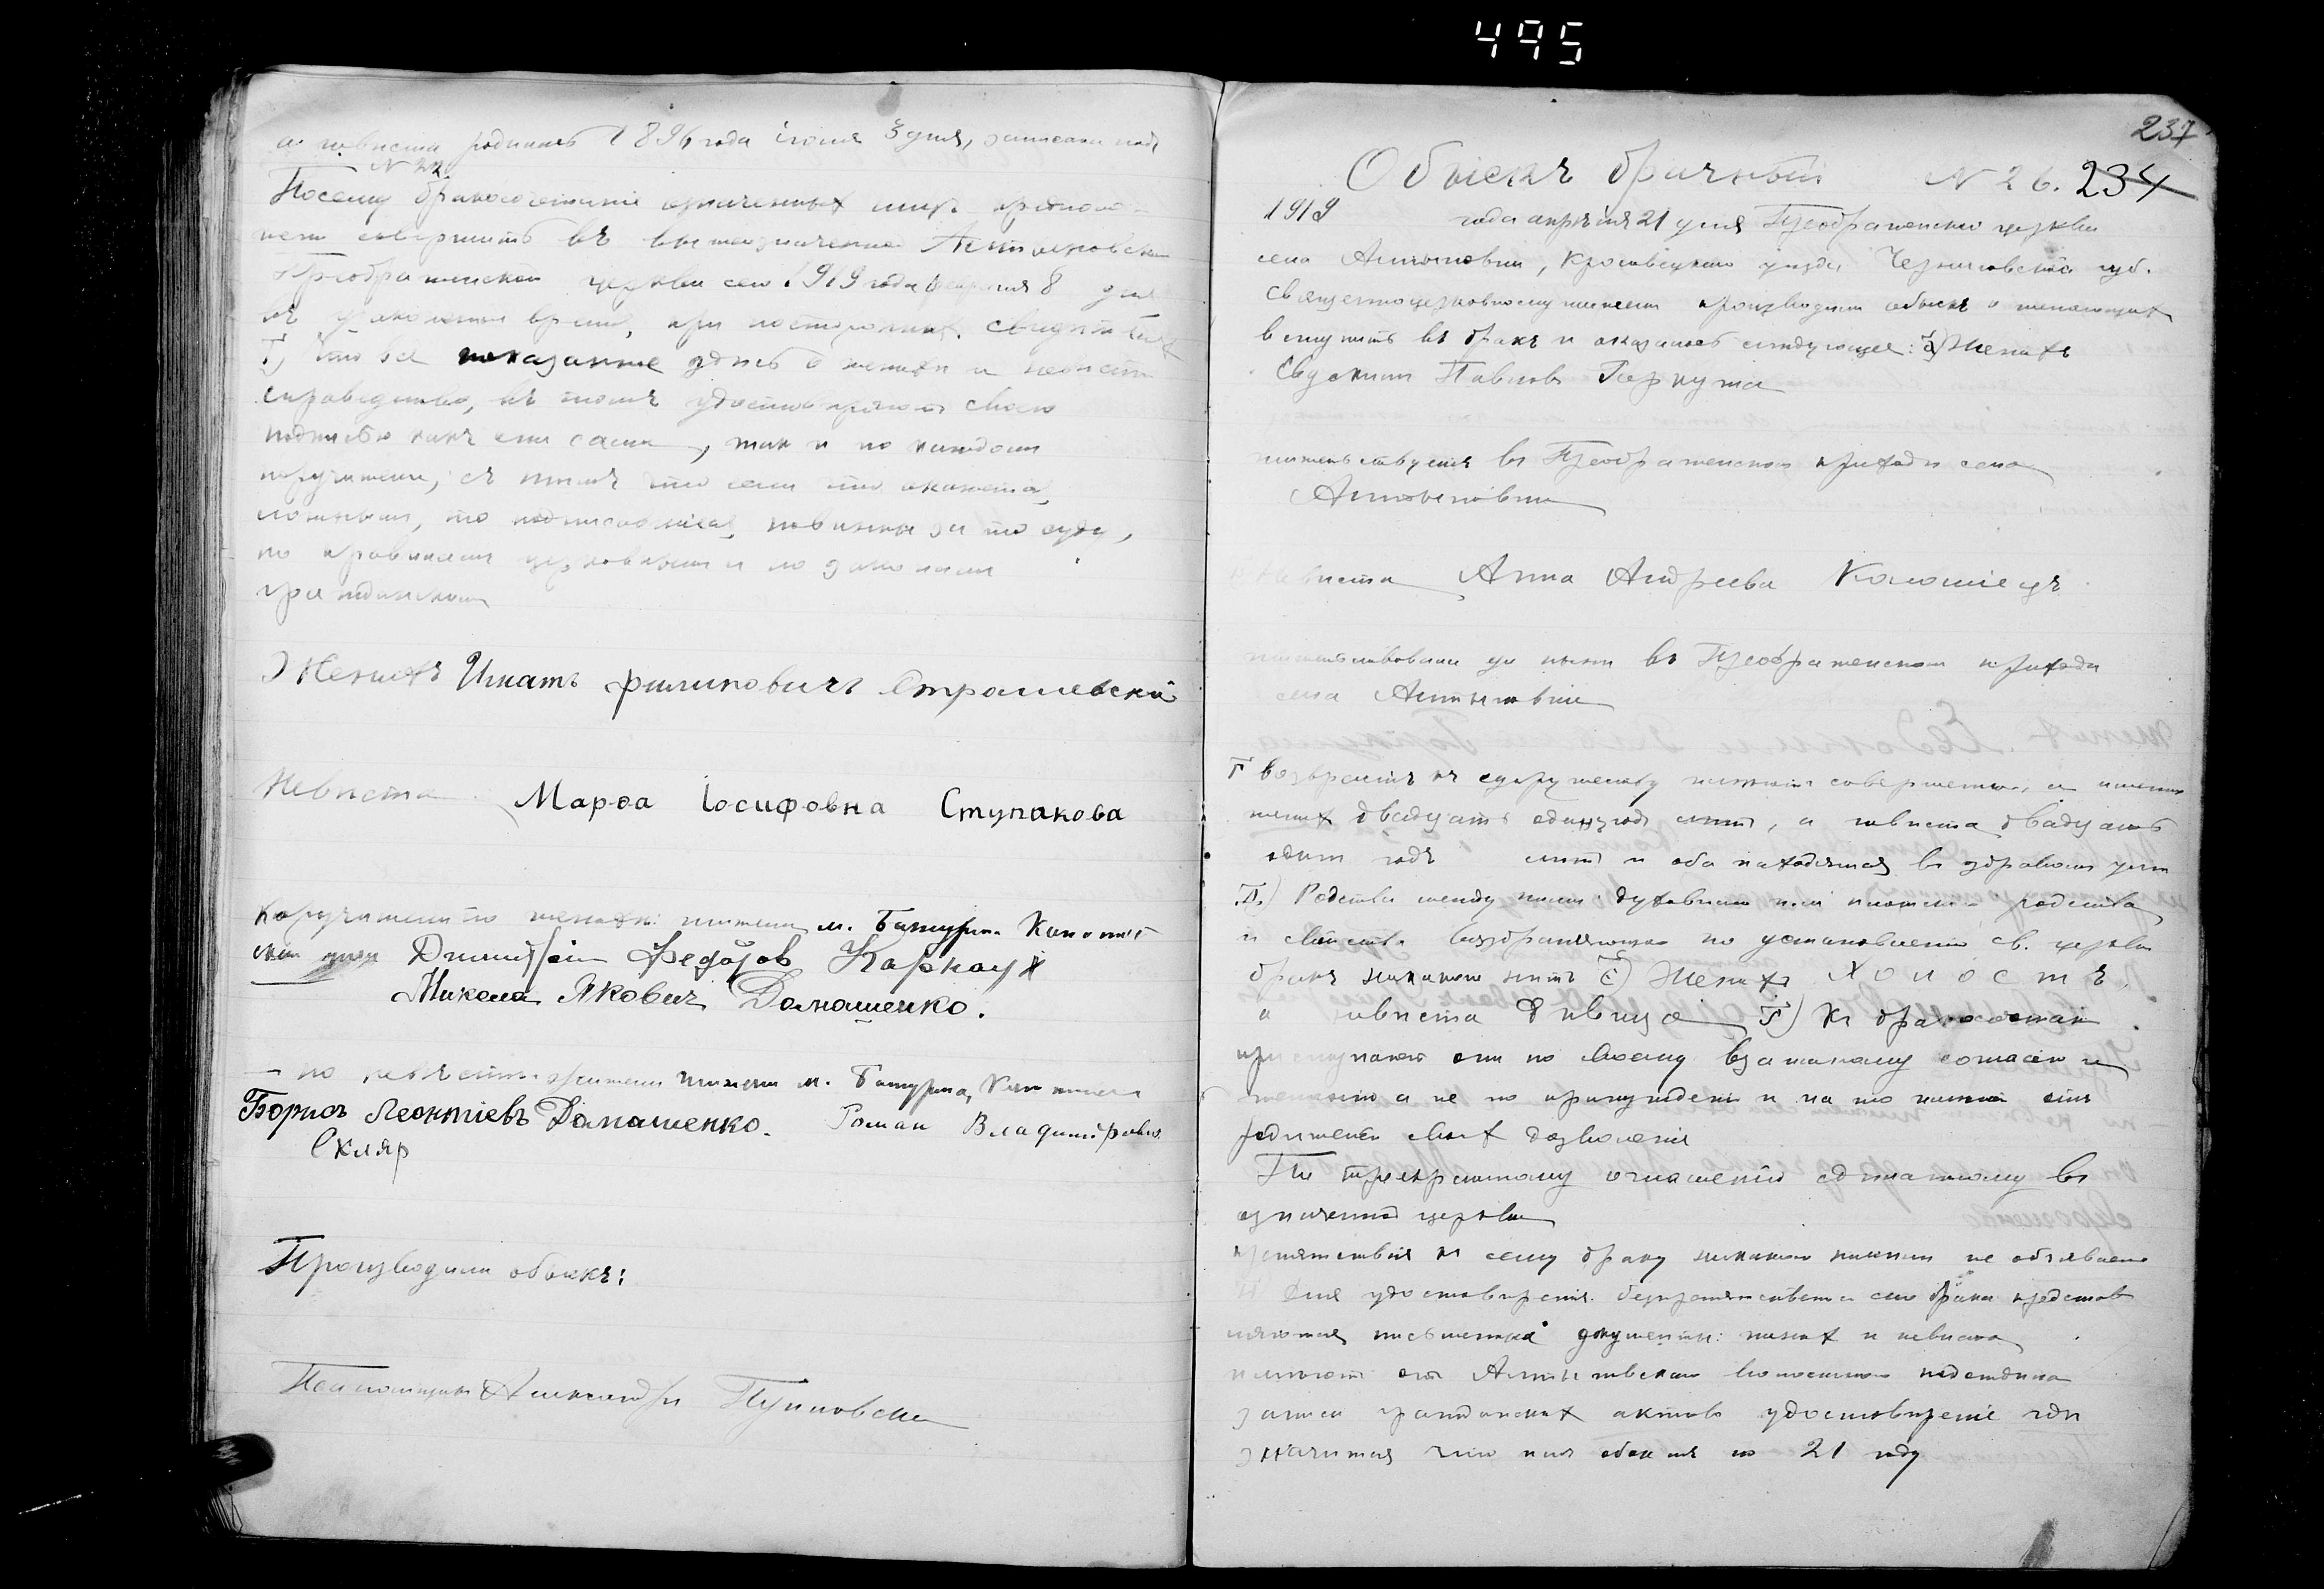 495
а невѣста родилась 1896 года іюня 3 дня, записана подъ
N 22
Посему бракосочетаніе означенныхъ лицъ предполо-
жено совершить въ вышеозначенной Алтыновской
Преображенской церкви сего 1919 года февраля 8 дня
въ узаконенное время, при постороннихъ свидѣтеляхъ
I) Что все показанное здѣсь о женихѣ и невѣстѣ
справедливо, въ томъ удостовѣряютъ своею
подписью какъ они сами, такъ и по каждомъ
поручители, съ тѣмъ что если что окажется
ложнымъ, то подписавшіеся повинны за то суду,
по правиламъ церковнымъ и по законамъ
гражданскимъ
Женихъ Игнатъ Филиповичъ Страшевскій
Невѣста Марѳа Іосифовна Ступакова
Поручители по женихѣ: жители м. Батурина Конотоп
Димитрій Федоров Каркаух
Микола Якович Домашенко.
— по невѣстѣ жители м. Батурина,
Борисъ Леонтіевъ Домашенко. Роман Владимірович
Скляр
Производили обыскъ:
Псаломщикъ Александръ
237
Обыскъ брачный N 26. 234
1919 года апрѣля 21 дня Преображенской церкви
села Алтыновки, Кролевецкаго уѣзда Черниговской губ.
Священноцерковнослужители производили обыскъ о желающихъ
вступить въ бракъ и оказалось слѣдующее: а) Женихъ
Евдокимъ Павловъ Гаркуша
жительствуетъ въ Преображенскомъ приходѣ села
Алтыновки
Невѣста Анна Андреева Коломіецъ
жительствовала до нынѣ въ Преображенскомъ приходѣ
села Алтыновки
Г возврастъ къ супружеству имѣютъ совершенный, а именно
женихъ двадцать одинъ годъ лѣтъ, а невѣста двадцать
одинъ годъ лѣтъ и оба находятся въ здравомъ умѣ
Д) Родства между ними духовнаго или плотскаго родства
и свойства возбраняющаго по установленію св. церкви
бракъ никакого нѣтъ Е) Женихъ Холостъ,
а невѣста дѣвица К бракосочетанію
приступаютъ они по своему взаимному согласію и
желанію а не по принужденію и на то имѣютъ они
родителей своихъ дозволенія
По троекратному оглашенію сдѣланному въ
означенной церкви
препятствія къ сему браку никакого никѣмъ не объявлено
Для удостовѣренія безпрепятственности сего брака представ
ляются письменные документы: женихъ и невѣста
имѣютъ отъ Алтыновскаго волостного подотдѣла
записи гражданскихъ актовъ удостовѣреніе гдѣ
значится что имъ обоимъ по 21 году